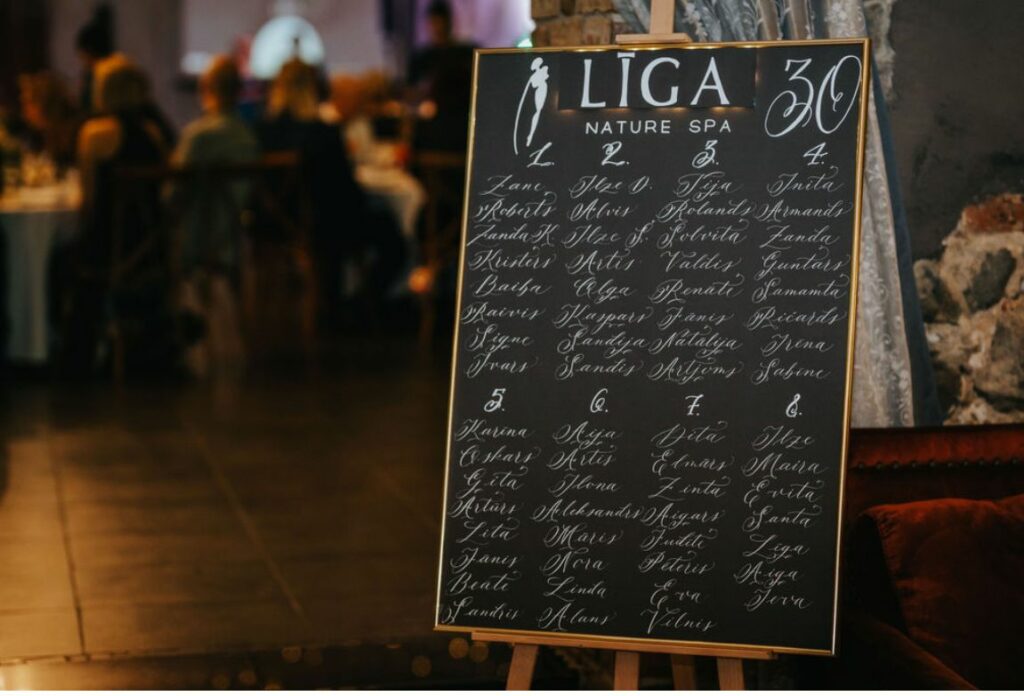 LĪGA 30
NATURE SPA
1. 2. 3. 4.
Zane Ilze D. Tija Inita
Roberts Alvis Rolands Armands
Zanda K Ilze S. Solvita Zanda
Kristers Artis Valdis Guntars
Baiba Olga Renāte Samamta
Raivis Kaspars Jānis Ričards
Signe Sandija Natālija Irena
Ivars Sandis Artjoms Sabine
5. 6. 7. 8.
Karina Aija Dita Ilze
Oskars Artis Elmārs Maira
Gita Ilona Zinta Evita
Artūrs Aleksandrs Aigars Santa
Lita Māris Judīte Līga
Jānis Nora Pēteris Aiga
Beāte Linda Eva Ieva
Sandris Alans Vilnis